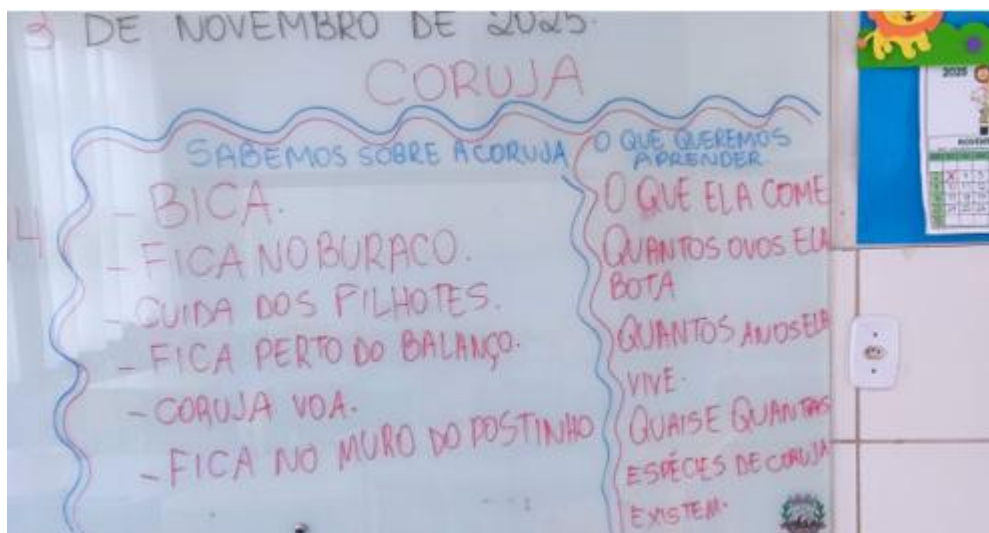 DE NOVEMBRO DE 2025.
CORUJA
SABEMOS SOBRE A CORUJA
- BICA.
- FICA NO BURACO.
- CUIDA DOS FILHOTES.
- FICA PERTO DO BALANÇO.
- CORUJA VOA.
- FICA NO MURO DO POSTINHO
O QUE QUEREMOS
APRENDER
O QUE ELA COME
QUANTOS OVOS ELA
BOTA
QUANTOS ANOS ELA
VIVE.
QUAIS E QUANTAS
ESPÉCIES DE CORUJA
EXISTEM.
2025